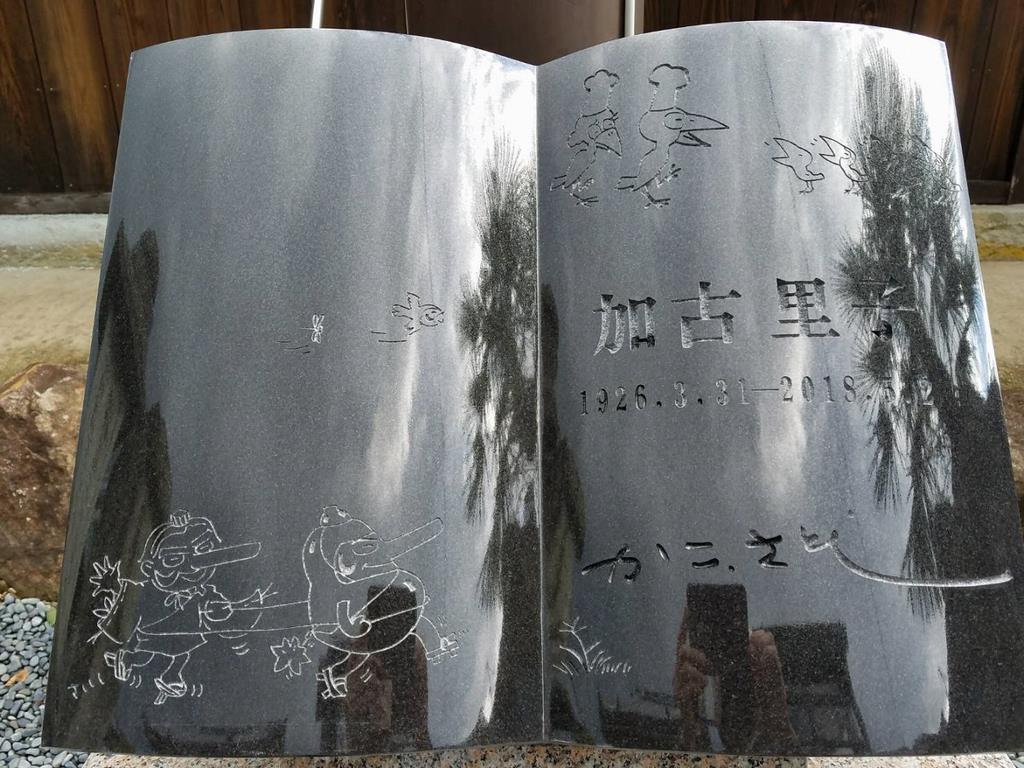 加古里子
1926.3.31–2018.5.2
かこ.さとし